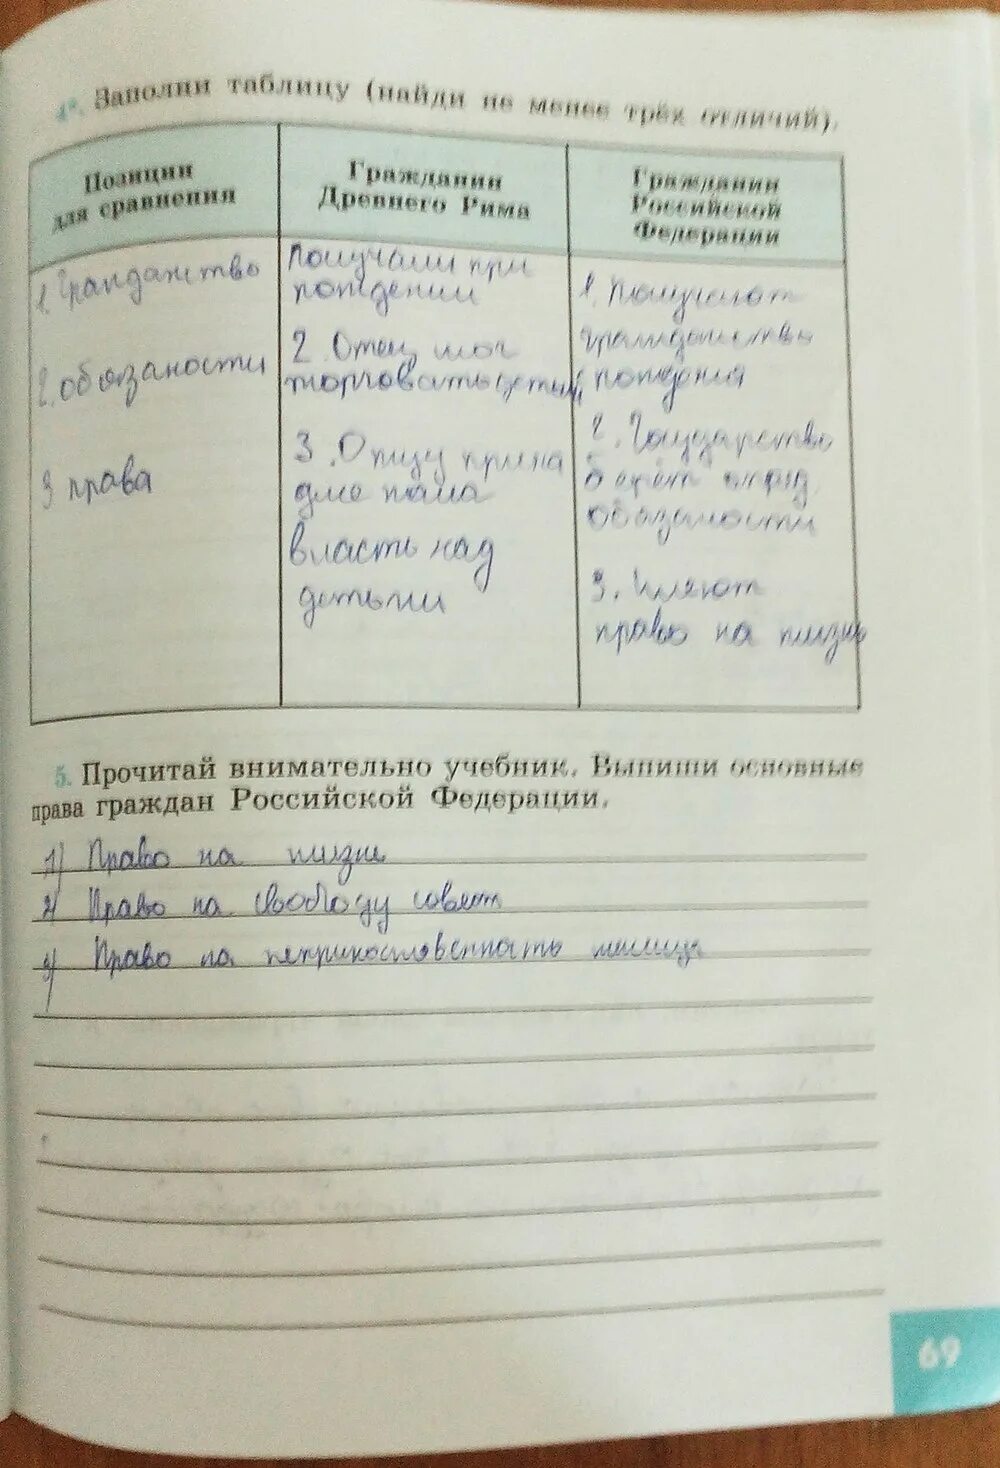 4*. Заполни таблицу (найди не менее трёх отличий).
Позиции
для сравнения
Гражданин
Древнего Рима
Гражданин
Российской
Федерации
1. Гражданство
2. обязаности
3 права
Получали при
рождении
2. Отец мог
торговать детьми
3. Отцу прина
дле
власть над
детьми
1. Получают
гражданство
с рождения
2. Государство
берёт
обязаности
3. Имеют
право на жизнь
5. Прочитай внимательно учебник. Выпиши основные
права граждан Российской Федерации.
1) Право на жизнь
2) Право на свободу совест
3) Право на неприкосновенность
69